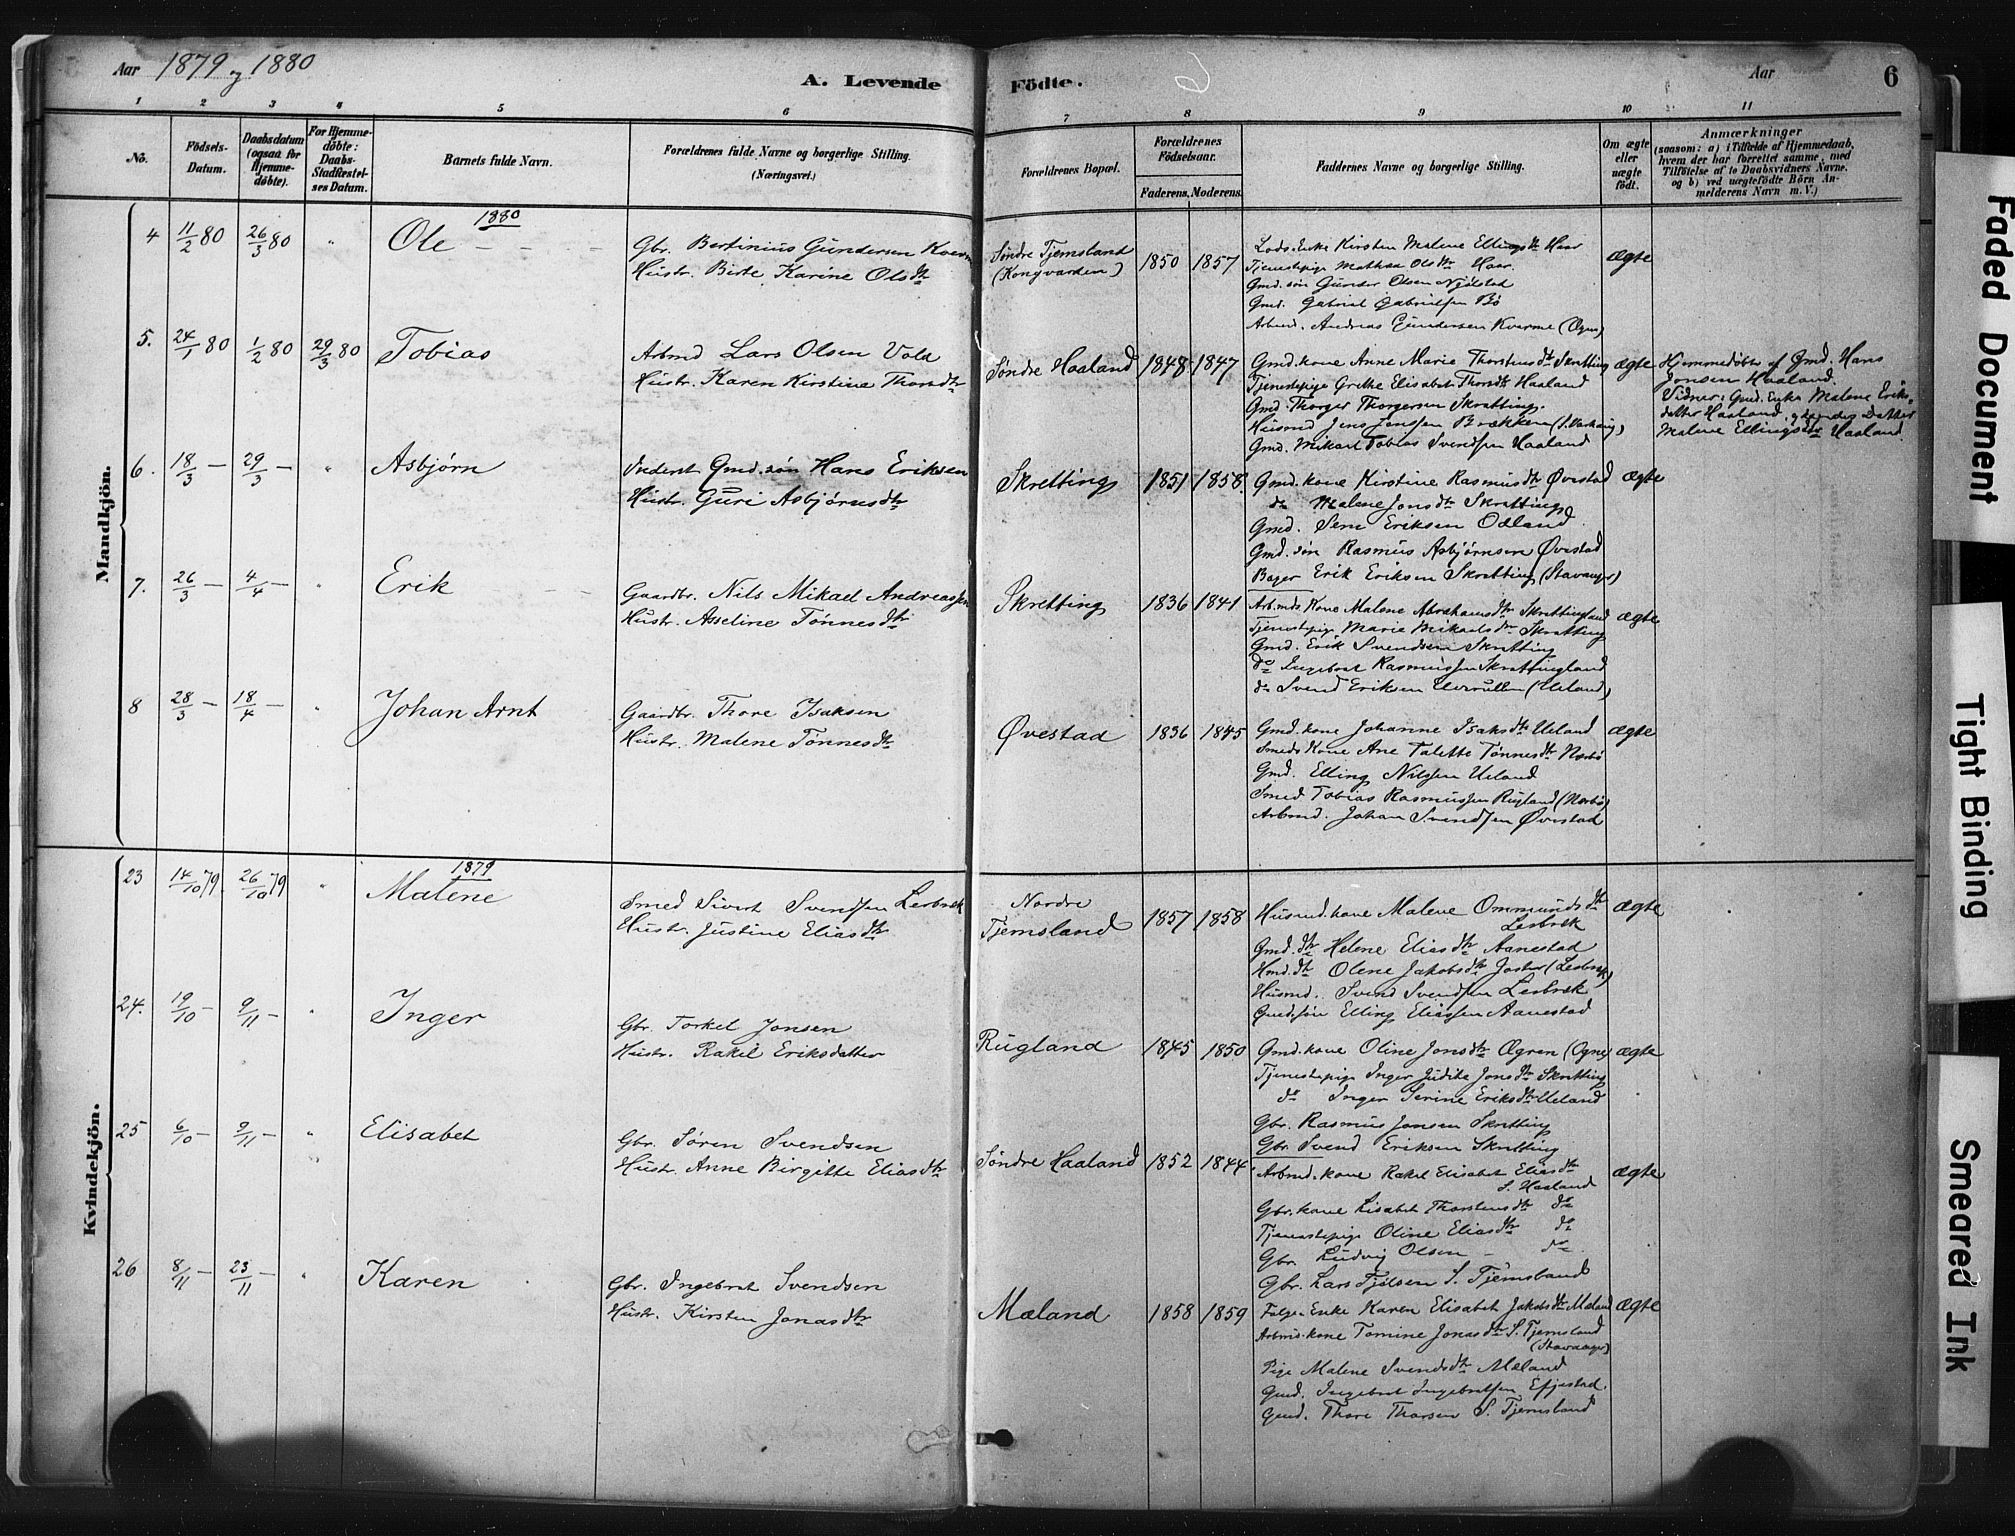 Aar 1879 og 1880
A. Levende Fødte.
Aar
6
1 2 3 4 5 6 7 8 9 10 11
No.
Födsels-Datum.
Daabsdatum (ogsaa for Hjemme-döbte).
For Hjemme-döbte: Daabs-Stadfæstel-ses Datum.
Barnets fulde Navn.
Forældrenes fulde Navne og borgerlige Stilling. (Næringsvei.)
Forældrenes Bopæl.
Forældrenes Födselsaar.
Faderens. Moderens.
Faddernes Navne og borgerlige Stilling.
Om ægte eller uægte födt.
Anmærkninger
(saasom: a) i Tilfælde af Hjemmedaab, hvem der har forrettet samme, med Tilföielse af to Daabsvidners Navne, og b) ved uægtefödte Börn An-melderens Navn m. V.)
Mandkjön.
1880
4 11/2 80 26/3 80 " Ole
Gbr. Bertinius Gundersen Kverm
Hustr. Birte Karine Olsdtr
Søndre Tjemsland (Kongvarden)
1850 1857
Lods Enke Kirsten Malene Ellingsdtr Haar
Tjenestepige Mathea Olsdtr Haar.
Gmd. søn Gunder Olsen Njølstad
Gmd. Gabriel Gabrielsen Bø
Arbmd. Andreas Gundersen Kverme (Ogne)
Ægte
5. 24/1 80 1/2 80 29/3 80 Tobias
Arbmd Lars Olsen Vold
Hustr. Karen Kirstine Thorsdtr
Søndre Haaland
1848 1847
Gmd. kone Anne Marie Thorstensdtr Skretting
Tjenestepige Grethe Elisabet Thorsdtr Haaland
Gmd. Thorger Thorgersen Skretting.
Husmd Jens Jenssen Brækken (S. Varhaug)
Gmd. Mikael Tobias Svendsen Haaland
Ægte
Hjemmedøbt af Gmd. Hans
Jonsen Haaland.
Vidner: Gmd. Enke Malene Eriks-
datter Haaland, og hendes Datter
Malene Ellingsdtr Haaland.
6. 18/3 – 29/3 – " Asbjørn
Inderst Gmd. søn Hans Eriksen
Hustr. Guri Asbjørnsdtr
Skretting
1851 1858.
Gmd. kone Kirstine Rasmusdtr Øvestad
do Malene Jonsdtr Skretting
Gmd. Sem Eriksen Odland.
Gmd. søn Rasmus Asbjørnsen Øvestad
Bager Erik Eriksen Skretting (Stavanger)
Ægte
7. 26/3 – 4/4 – " Erik
Gaardbr. Nils Mikael Andreassen
Hustr. Asseline Tønnesdtr
Skretting
1836 1841
Arb.mds Kone Malene Abrahamsdtr Skrettingland
Tjenestepige Marie Mikaelsdtr Skretting
Gmd. Erik Svendsen Skretting
do Ingebret Rasmussen Skrettingland
do Svend Eriksen (Ueland)
Ægte
8 28/3 – 18/4 – " Johan Arnt
Gaardbr. Thore Isaksen
Hustr. Malene Tønnesdtr
Øvestad
1836 1845
Gmd. kone Johanne Isaksdtr Ueland
Smeds Kone Ane Talette Tønnesdtr Nærbø
Gmd. Elling Nilssen Ueland
Smed Tobias Rasmussen Rugland (Nærbø)
Arbmd. Johan Svendsen Øvestad
Ægte
Kvindekjön.
1879
23 14/10 79. 26/10 79 " Malene
Smed Sivert Svendsen Lerbræk
Hustr. Justine Eliasdtr
Nordre Tjemsland
1857 1858
Husmd. kone Malene Ommundsdtr
Lerbræk
Gmd. dtr Helene Eliasdtr Aanestad
Hmd. dtr Olene Jakobsdtr Jaster (Lerbræk)
Husmd. Svend Svendsen Lerbræk
Gmd. søn Elling Eliassen Aanestad
Ægte
24. 19/10 – 9/11 – " Inger
Gbr. Torkel Jonsen
Hustr. Rakel Eriksdatter
Rugland
1845 1850
Gmd. kone Oline Jonsdtr Øgren (Ogne)
Tjenestepige Inger Judite Jonsdtr Skretting
do Inger Serine Eriksdtr Ueland
Gbr. Rasmus Jonsen Skretting
Gbr. Svend Eriksen Skretting
Ægte
25 6/10 – 9/11 – " Elisabet
Gbr. Søren Svendsen
Hustr. Anne Birgitte Eliasdtr
Søndre Haaland
1852 1844
Arbmd. kone Rakel Elisabet Eliasdtr
S. Haaland
Gbr. kone Lisabet Thorstensdtr do
Tjenestepige Oline Eliasdtr do
Gbr Ludvig Olsen – do
Gbr. Lars Fjelsen S. Tjemsland
Ægte
26 8/11 – 23/11 – " Karen
Gbr. Ingebret Svendsen
Hustr. Kirsten Jonasdtr
Mæland
1858 1859
Følge Enke Karen Elisabet Jakobsdtr Mæland
Arbmds. kone Tomine Jonasdtr S. Tjemsland
(Stavanger)
Pige Malene Svendsdtr Mæland
Gmd. Ingebret Ingebretsen Efjestad.
Gmd. Thore Thorsen S. Tjemsland
Ægte
Faded Document
Tight Binding
Smeared Ink